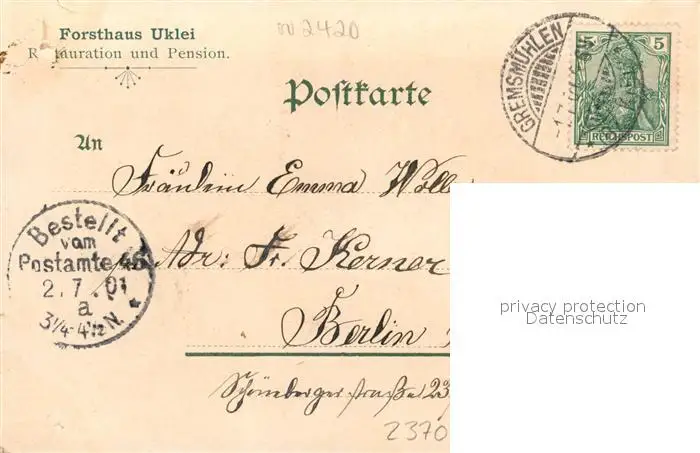 Forsthaus Uklei
Restauration und Pension.
2420
Postkarte
GREMSMÜHLEN
5 5
REICHSPOST
An
Fräulein Emma
Adr: Fr. Kerner
Berlin
Bestellt
vom
Postamte 46
2.7.01
a
3¼-4½N.
privacy protection
Datenschutz
2370